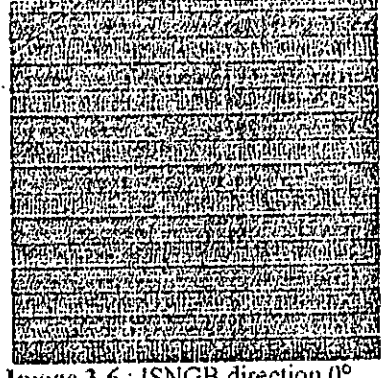 Image 3.6 : JSNGB direction 0°